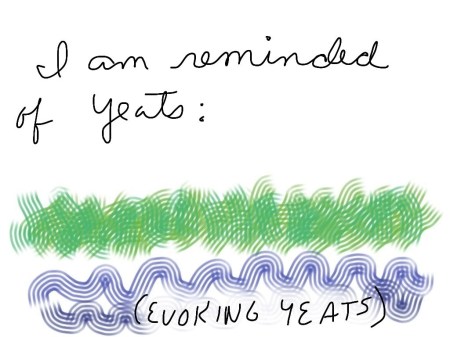 I am reminded
of Yeats:
(EVOKING YEATS)